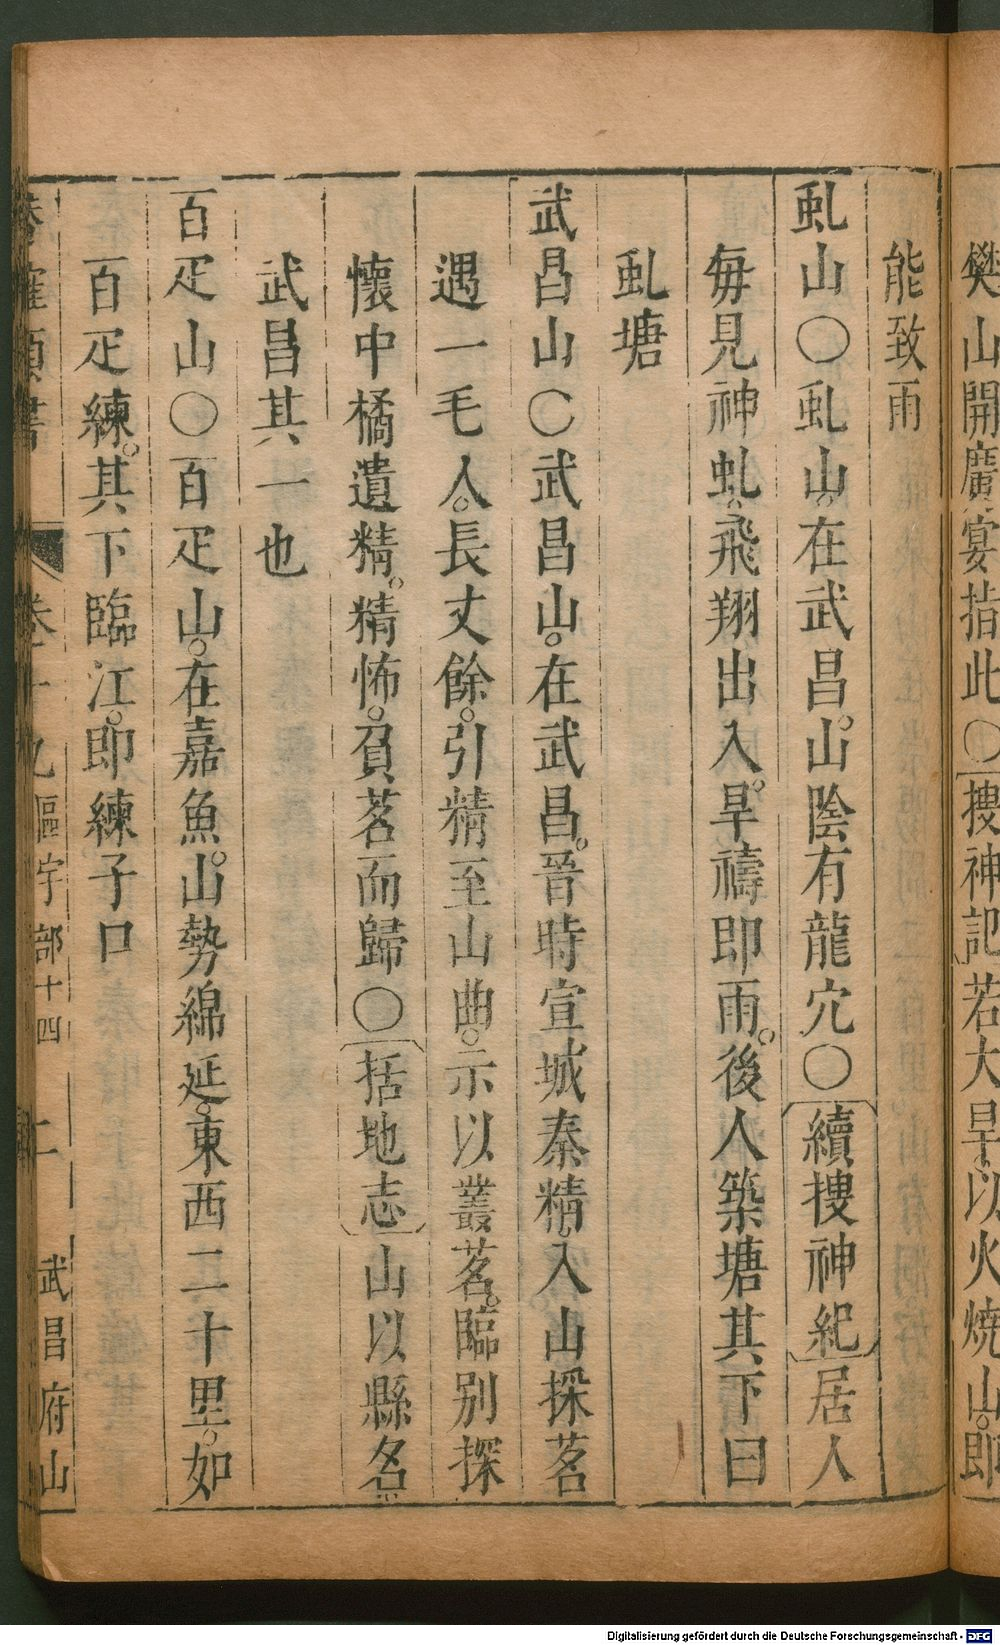 樊山開廣宴指此〇搜神記若大旱以火燒山即
能致雨
虬山〇虬山在武昌山陰有龍穴〇續搜神紀居人
每見神虬飛翔出入旱禱即雨後人築塘其下曰
虬塘
武昌山〇武昌山在武昌晉時宣城秦精入山採茗
遇一毛人長丈餘引精至山曲示以叢茗臨別探
懷中橘遺精精怖負茗而歸〇括地志山以縣名
武昌其一也
百疋山〇百疋山在嘉魚山勢綿延東西二十里如
百疋練其下臨江即練子口
卷十九區宇部十四 二 武昌府山
Digitalisierung gefördert durch die Deutsche Forschungsgemeinschaft - DFG